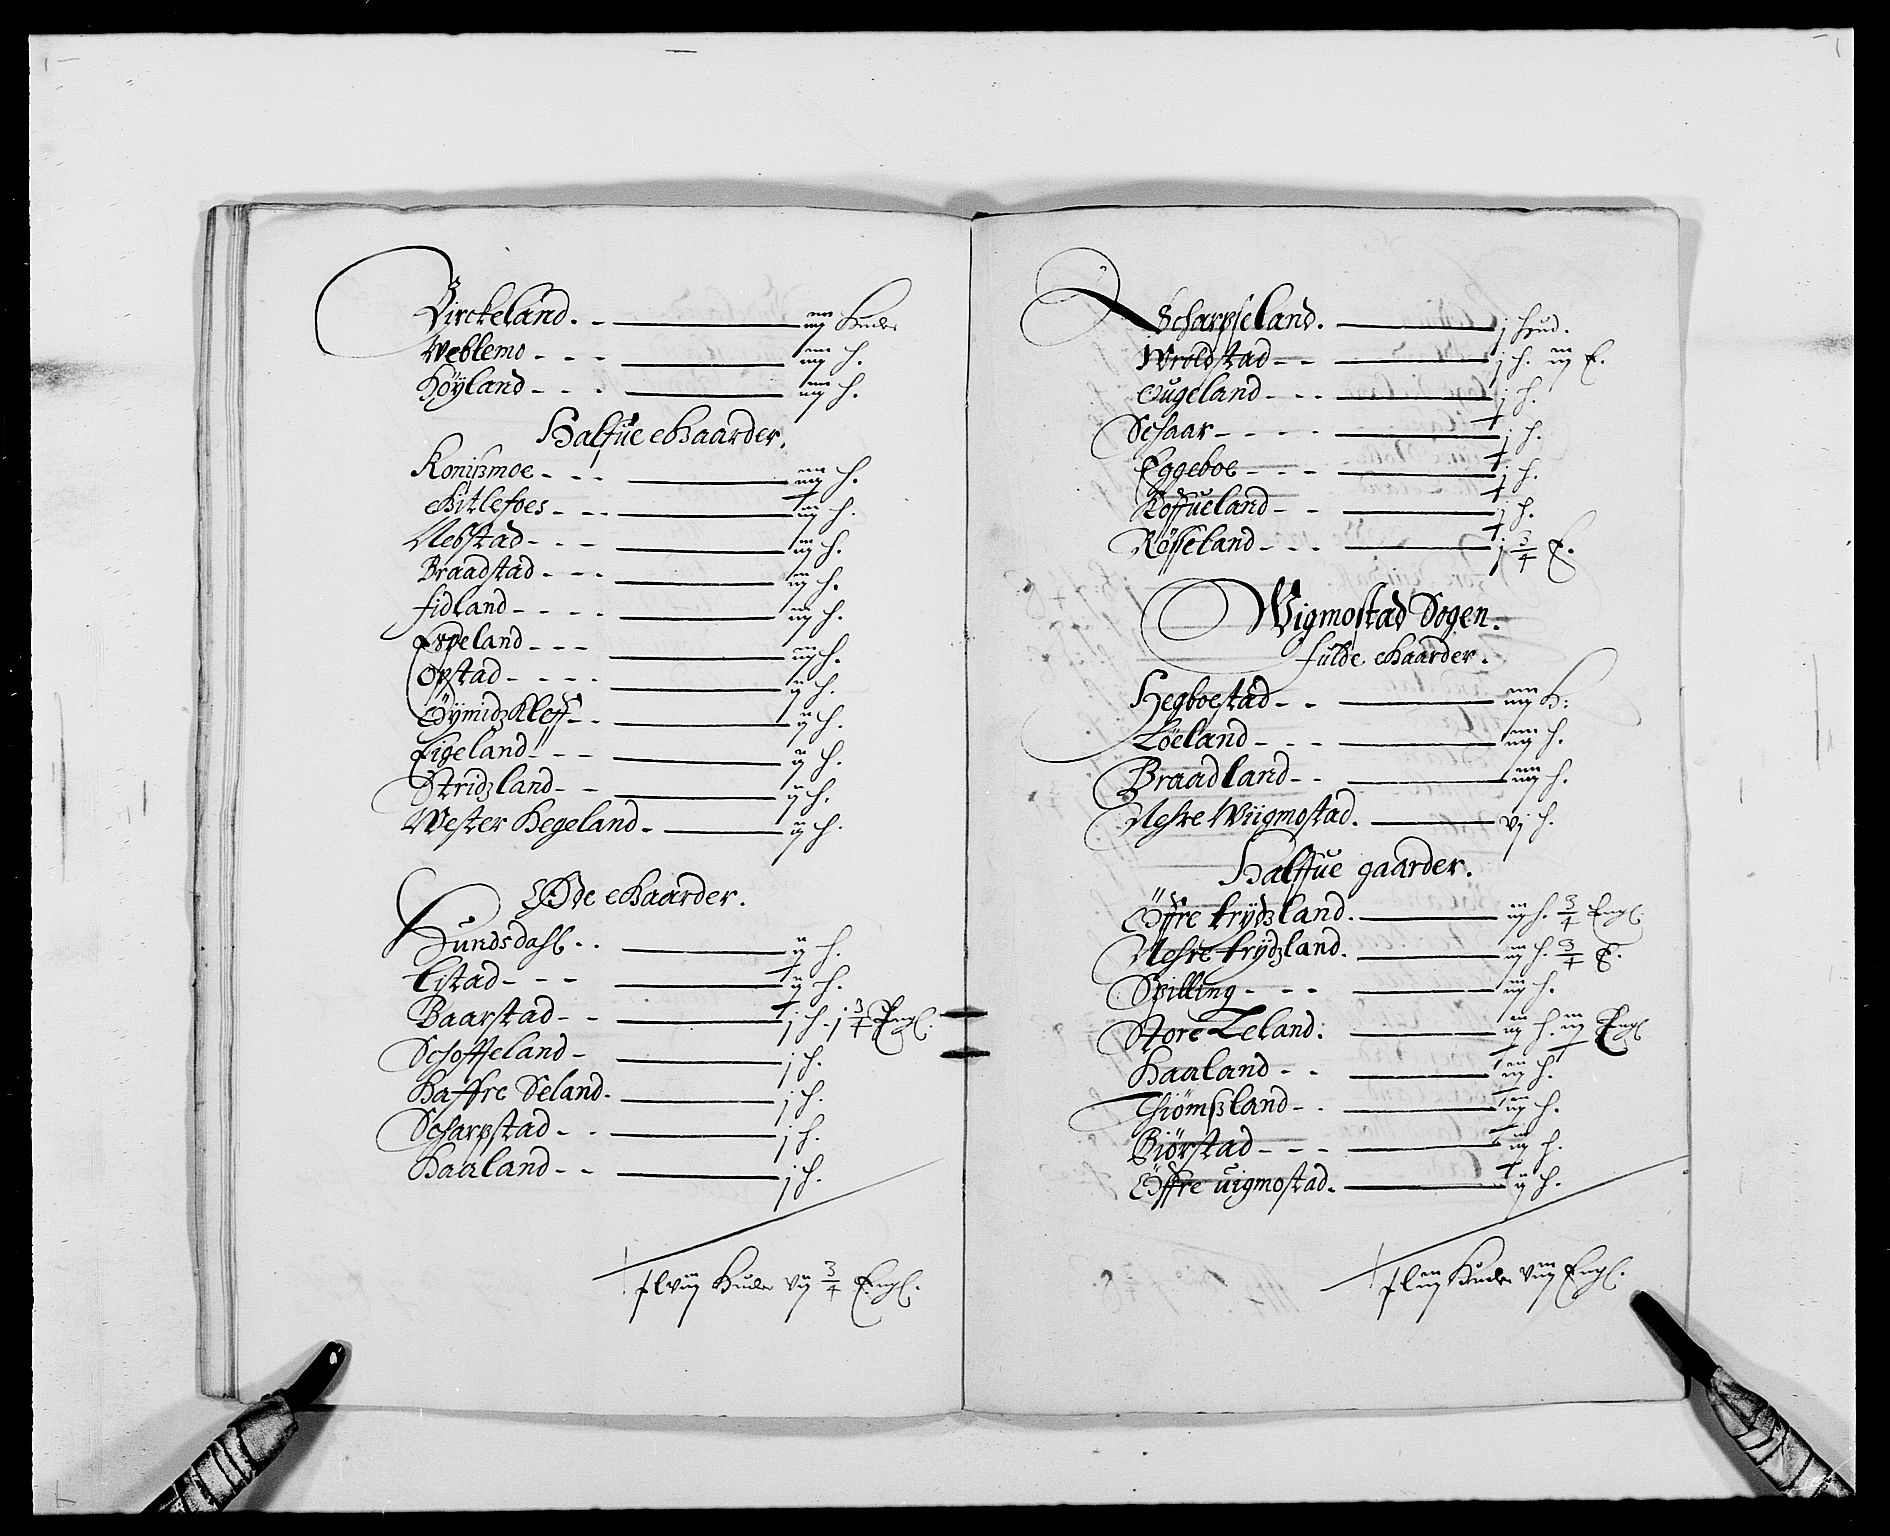 Birckeland. - iiij Huder
Weblemo - - - iiij H.
Höyland - - - iiij H.
Halfue Gaarder.
Konißmoe - - - iiij H.
Gitlefoes - - - iij H.
Nebstad - - - iij H.
Braadstad - - - iij H.
Fidland - - - - iij H.
Espeland - - - iij H.
Opstad - - - - ij H.
Öÿmidzkleff - - ij H.
Eigeland - - - ij H.
Stridzland - - ij H.
Wester Hegeland. ij H.
Öde Gaarder.
Hundsdahl - - ij H.
Eistad - - - ij H.
Baarstad - - j H. j 3/4 Engl.
Schoffteland - j H.
Haffre Seland. j H.
Scharpstad - - j H.
Haaland - - j H.
Huder 3/4 Engl.
Scharpseland. j Hud.
Wroldstad - - j H. iij E.
Öugeland - - - j H.
Schaar - - - - j H.
Eggeboe - - - j H.
Röffueland - - j H.
Rösseland - - - j 3/4 E.
Wigmostad Sogen.
Fulde Gaarder.
Hegboestad - - iiij H:
Löeland - - - iiij H.
Braadland - - iiij H.
Nehre Wiigmostad. vj H.
Halffue gaarder.
Öffre trÿdzland. iij H. 3/4 Engl.
Nehre trÿdzland. iij H. 3/4 E.
Spilling - - - iij H.
Store Leland: iij H. iij Engl
Haaland - - iij H.
Thiömßland - - iij H.
Biörstad - - - ij H.
Öffre uigmostad. ij H.
Huder Engl.